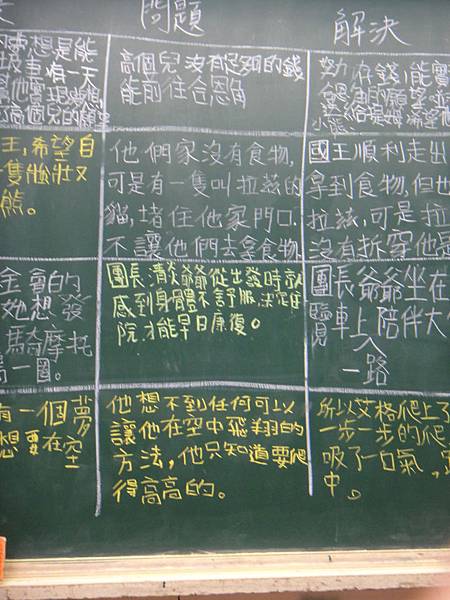 問題
解決
想是能
車,有一天
高個兒沒有足夠的錢
能前往合恩角
努力存錢,能實
王,希望自
一隻雄壯又
熊。
他們家沒有食物,
可是有一隻叫拉茲的
貓,堵住他家門口.
不讓他們去拿食物
國王順利走出
拿到食物,但也
拉茲,可是拉
沒有拆穿他是
金會的
她想發
騎摩托
一圈。
團長 爺爺從出發時就
感到身體不舒服,決定住
院才能早日康復。
團長爺爺坐在
車上陪伴大
一路
有一個夢
想要在空
他想不到任何可以
讓他在空中飛翔的
方法,他只知道要爬
得高高的。
所以艾格爬上了
一步一步的爬
吸了一口氣,
中。